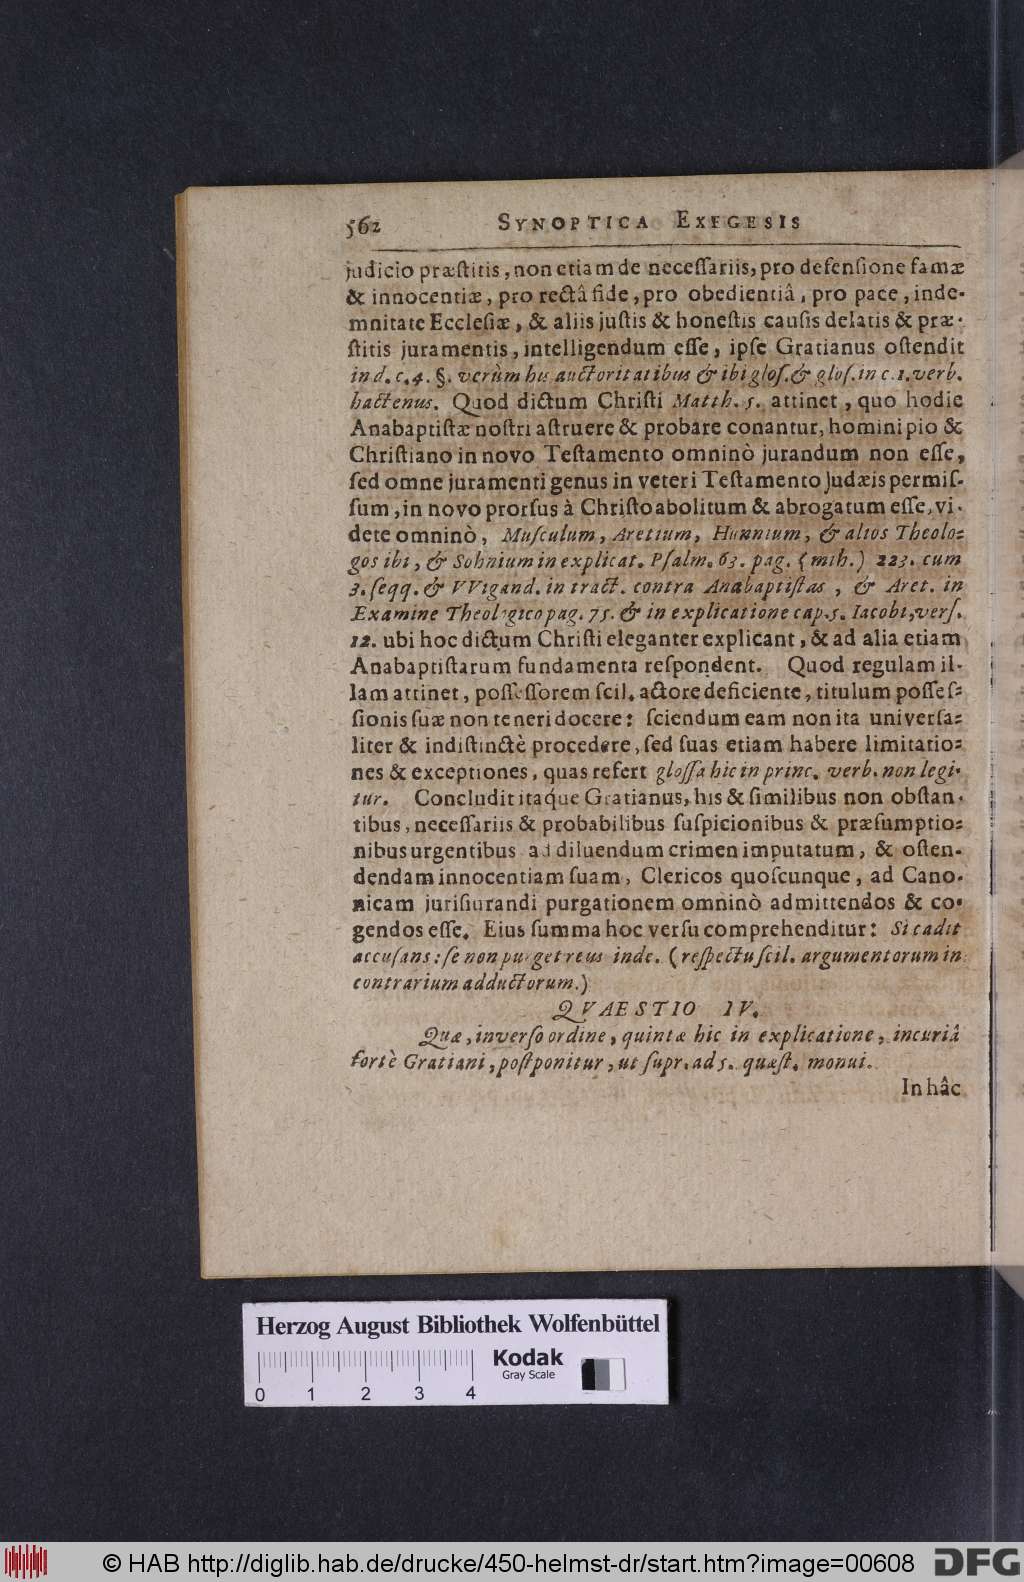 562 SYNOPTICA EXEGESIS
judicio præſtitis, non etiam de neceſſariis, pro defenſione famæ
& innocentiæ, pro rectâ fide, pro obedientiâ, pro pace, inde-
mnitate Eccleſiæ, & aliis juſtis & honeſtis cauſis delatis & præ-
ſtitis juramentis, intelligendum eſſe, ipſe Gratianus oſtendit
in d. c. 4. §. verùm his auctoritatibus & ibi gloſ. & gloſ. in c. 1. verb.
hactenus. Quod dictum Chriſti Matth. 5. attinet, quo hodie
Anabaptiſtæ noſtri aſtruere & probare conantur, homini pio &
Chriſtiano in novo Teſtamento omninò jurandum non eſſe,
ſed omne juramenti genus in veteri Teſtamento Judæis permiſ-
ſum, in novo prorſus à Chriſto abolitum & abrogatum eſſe, vi-
dete omninò, Muſculum, Aretium, Hunnium, & alios Theolo-
gos ibi, & Sohnium in explicat. Pſalm. 63. pag. (mih.) 223. cum
3. ſeqq. & VVigand. in tract. contra Anabaptiſtas, & Aret. in
Examine Theologico pag. 75. & in explicatione cap. 5. Iacobi, verſ.
12. ubi hoc dictum Chriſti eleganter explicant, & ad alia etiam
Anabaptiſtarum fundamenta reſpondent. Quod regulam il-
lam attinet, poſſeſſorem ſcil. actore deficiente, titulum poſſeſ-
ſionis ſuæ non teneri docere: ſciendum eam non ita univerſa-
liter & indiſtinctè procedere, ſed ſuas etiam habere limitatio-
nes & exceptiones, quas refert gloſſa hic in princ. verb. non legi-
tur. Concludit itaque Gratianus, his & ſimilibus non obſtan-
tibus, neceſſariis & probabilibus ſuſpicionibus & præſumptio-
nibus urgentibus ad diluendum crimen imputatum, & oſten-
dendam innocentiam ſuam, Clericos quoſcunque, ad Cano-
nicam juriſiurandi purgationem omninò admittendos & co-
gendos eſſe. Eius ſumma hoc verſu comprehenditur: Si cadit
accuſans: ſe non purget reus inde. (reſpectu ſcil. argumentorum in
contrarium adductorum.)
QVAESTIO IV.
Quæ, inverſo ordine, quintæ hic in explicatione, incuriâ
fortè Gratiani, poſtponitur, ut ſupr. ad 5. quæſt. monui.
In hâc
Herzog August Bibliothek Wolfenbüttel
Kodak
Gray Scale
0 1 2 3 4
© HAB http://diglib.hab.de/drucke/450-helmst-dr/start.htm?image=00608
DFG